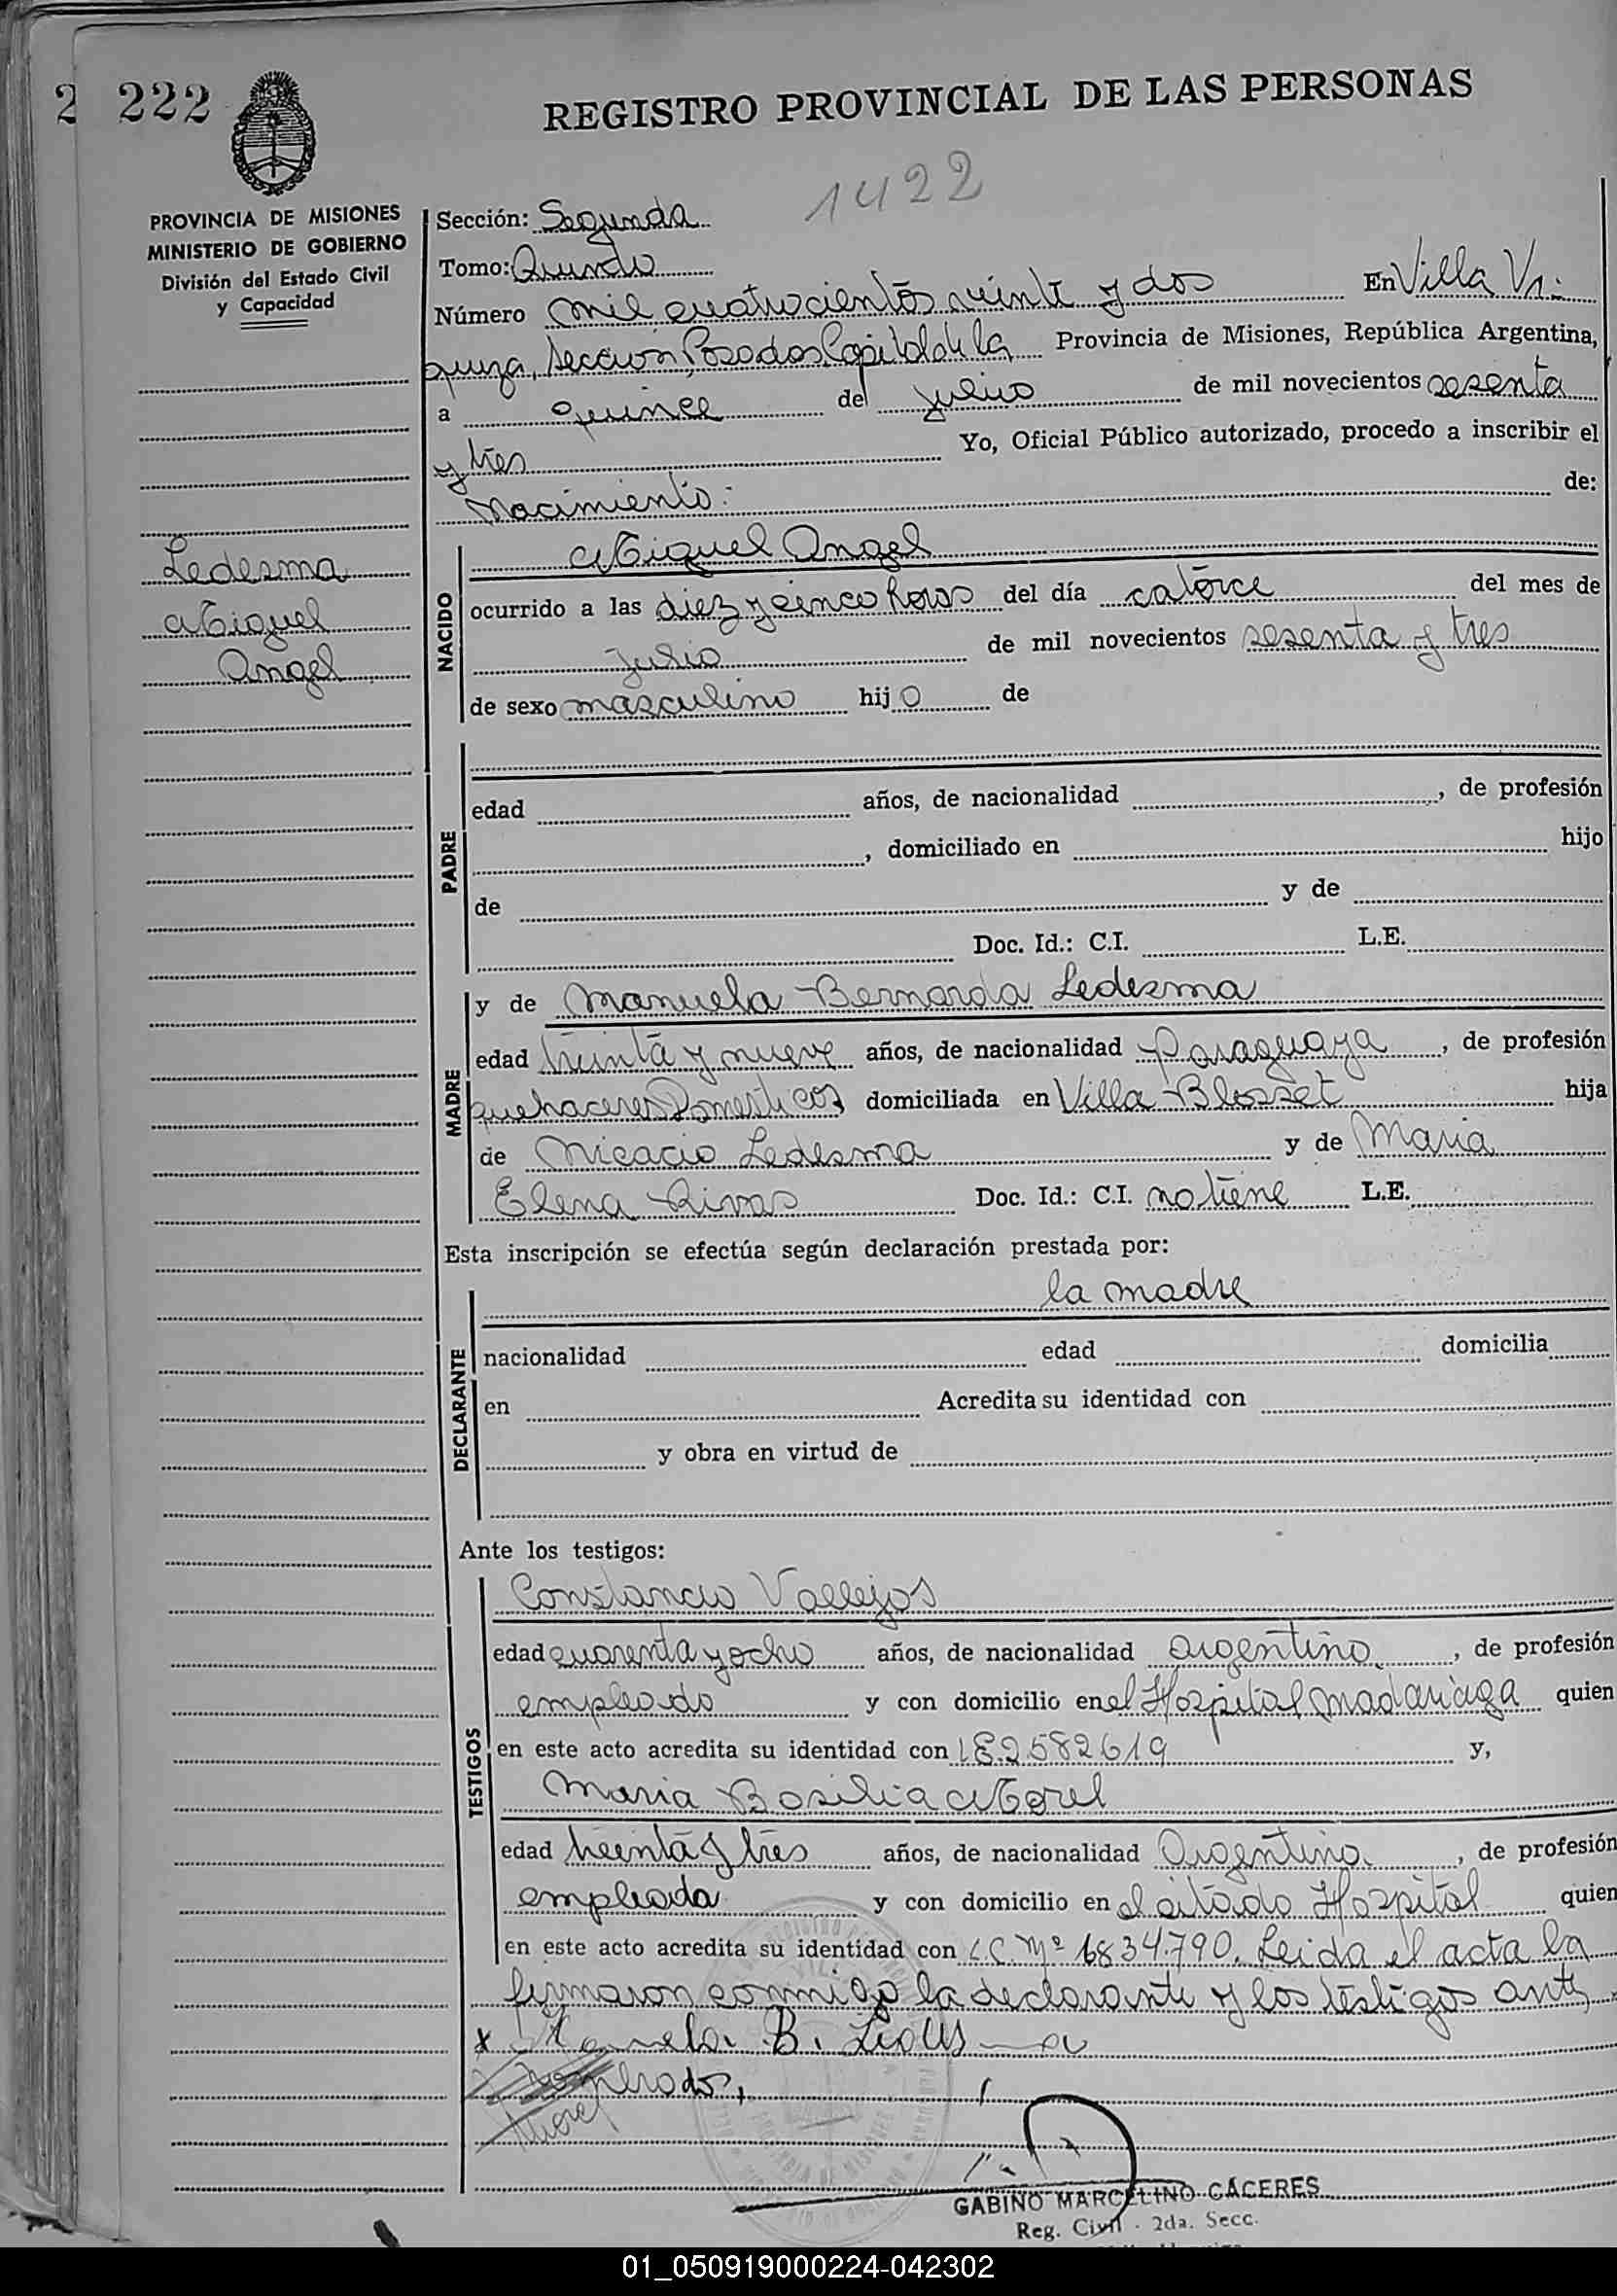 2 222
REGISTRO PROVINCIAL DE LAS PERSONAS
1422
PROVINCIA DE MISIONES
MINISTERIO DE GOBIERNO
División del Estado Civil
y Capacidad
Ledesma
Miguel
Angel
Sección: Segunda
Tomo: Quinto
Número mil cuatrocientos veinte y dos En Villa Ur-
quiza, Sección, Posadas Capital de la Provincia de Misiones, República Argentina,
a quince de julio de mil novecientos sesenta
y tres Yo, Oficial Público autorizado, procedo a inscribir el
Nacimiento: de:
NACIDO
Miguel Angel
ocurrido a las diez y cinco horas del día catorce del mes de
julio de mil novecientos sesenta y tres
de sexo masculino hijo de
PADRE
edad años, de nacionalidad , de profesión
, domiciliado en hijo
de y de
Doc. Id.: C.I. L.E.
MADRE
y de Manuela Bernarda Ledesma
edad treinta y nueve años, de nacionalidad Paraguaya, de profesión
quehaceres Domesticos domiciliada en Villa Blosset hija
de Nicacio Ledesma y de Maria
Elena Rivas Doc. Id.: C.I. no tiene L.E.
Esta inscripción se efectúa según declaración prestada por:
DECLARANTE
la madre
nacionalidad edad domicilia
en Acredita su identidad con
y obra en virtud de
Ante los testigos:
TESTIGOS
Constancio Vallejos
edad cuarenta y ocho años, de nacionalidad argentino, de profesión
empleado y con domicilio en el Hospital Madariaga quien
en este acto acredita su identidad con L E. 2582619 y,
Maria Basilia Morel
edad treinta y tres años, de nacionalidad Argentina, de profesión
empleada y con domicilio en el citado Hospital quien
en este acto acredita su identidad con L.C. Nº 6834.790. Leida el acta la
firmaron conmigo la declarante y los testigos ante
x Manuela B. Ledesma
Morel
GABINO MARCELINO CÁCERES
Reg. Civil - 2da. Secc.
01_050919000224-042302